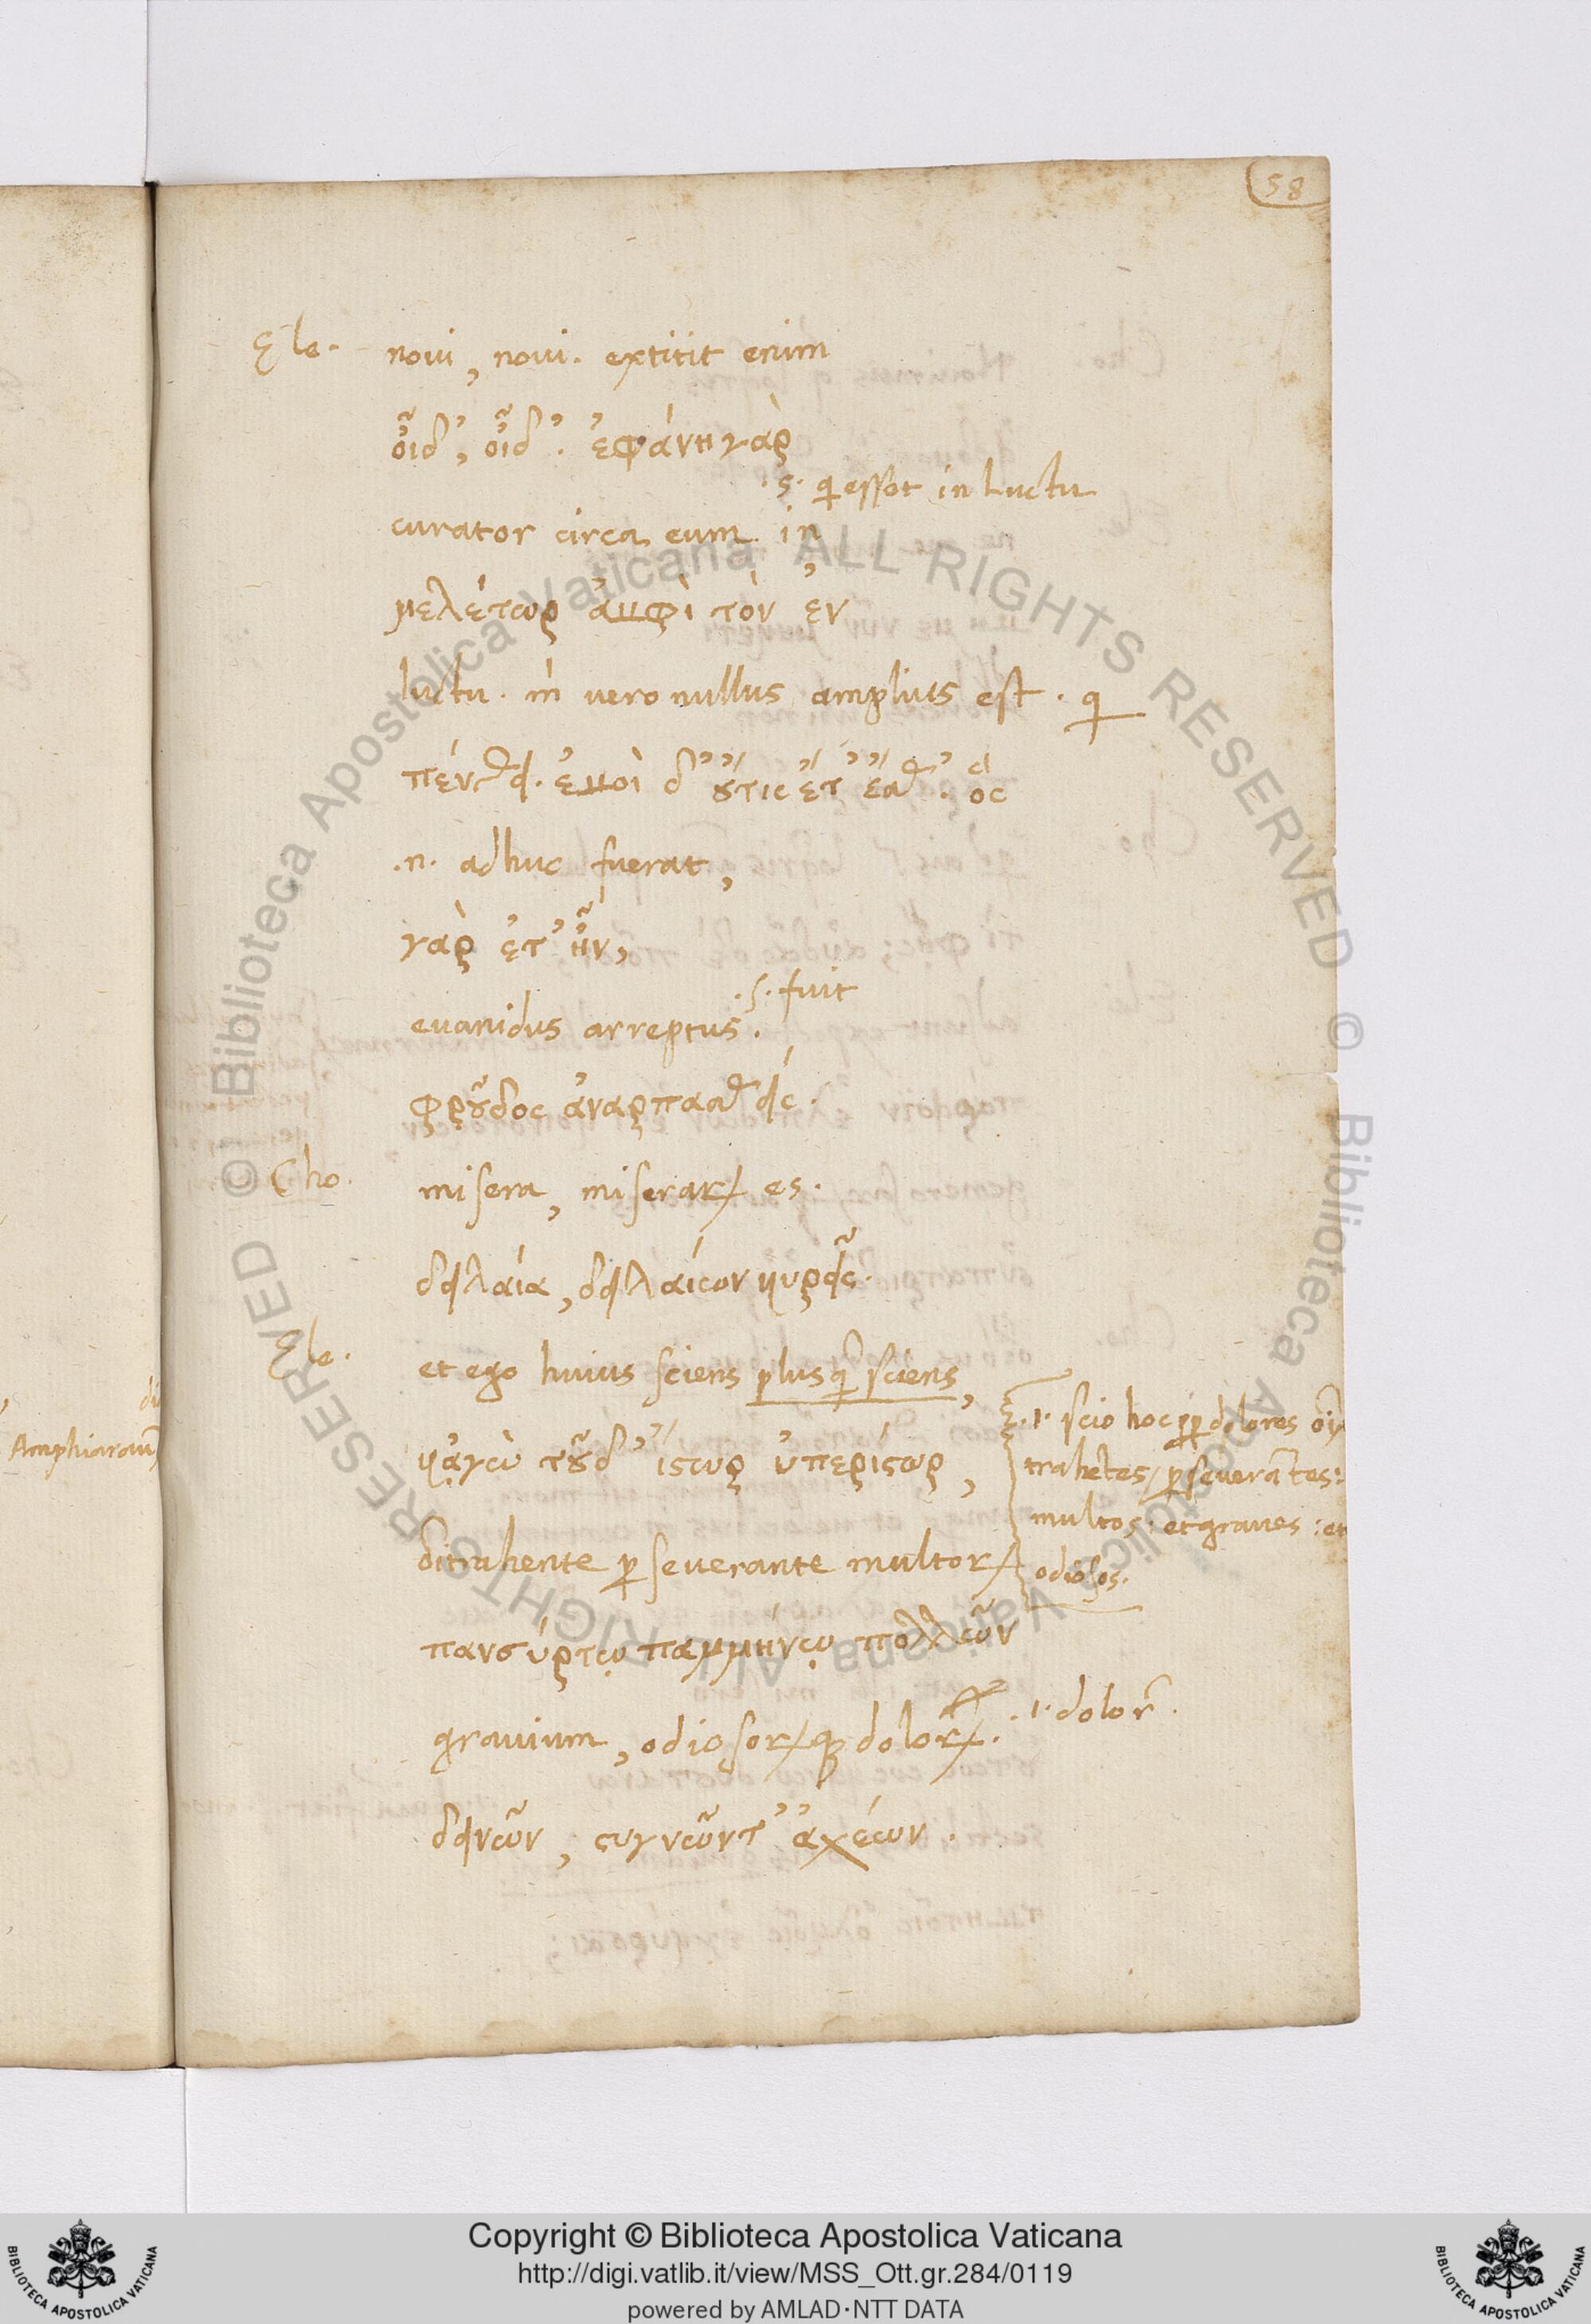 58
Ele. novi, novi. extitit enim
οἶδ', οἶδ'. ἐφάνη γὰρ
.s. qi esset in Luctu
curator circa eum in
μελέτωρ ἀμφὶ τὸν ἐν
luctu. m vero nullus amplius est. qi
πένθει. ἐμοὶ δ' οὔτις ἔτ' ἔσθ'. ὃς
.n. adhuc fuerat,
γὰρ ἔτ' ἦν,
.s. fuit
evanidus arreptus.
φροῦδος ἀναρπασθείς.
Cho. misera, miserar es.
δειλαία, δειλαίων κυρεῖς.
Ele. et ego huius sciens plusq sciens,
κἀγὼ τοῦδ' ἴστωρ ὑπερίστωρ,
.i. scio hoc pp dolores
trahentes perseverantes:
multos: et graves: et
odiosos.
ditrahente perseverante multor
πανσύρτῳ παμμήνῳ πολλῶν
.i. dolor.
gravium, odiosorque dolor.
δεινῶν, στυγνῶν τ' ἀχέων.
Amphiaraum
Copyright © Biblioteca Apostolica Vaticana
http://digi.vatlib.it/view/MSS_Ott.gr.284/0119
powered by AMLAD·NTT DATA
BIBLIOTECA APOSTOLICA VATICANA
BIBLIOTECA APOSTOLICA VATICANA
© Biblioteca Apostolica Vaticana ALL RIGHTS RESERVED
© Biblioteca Apostolica Vaticana ALL RIGHTS RESERVED